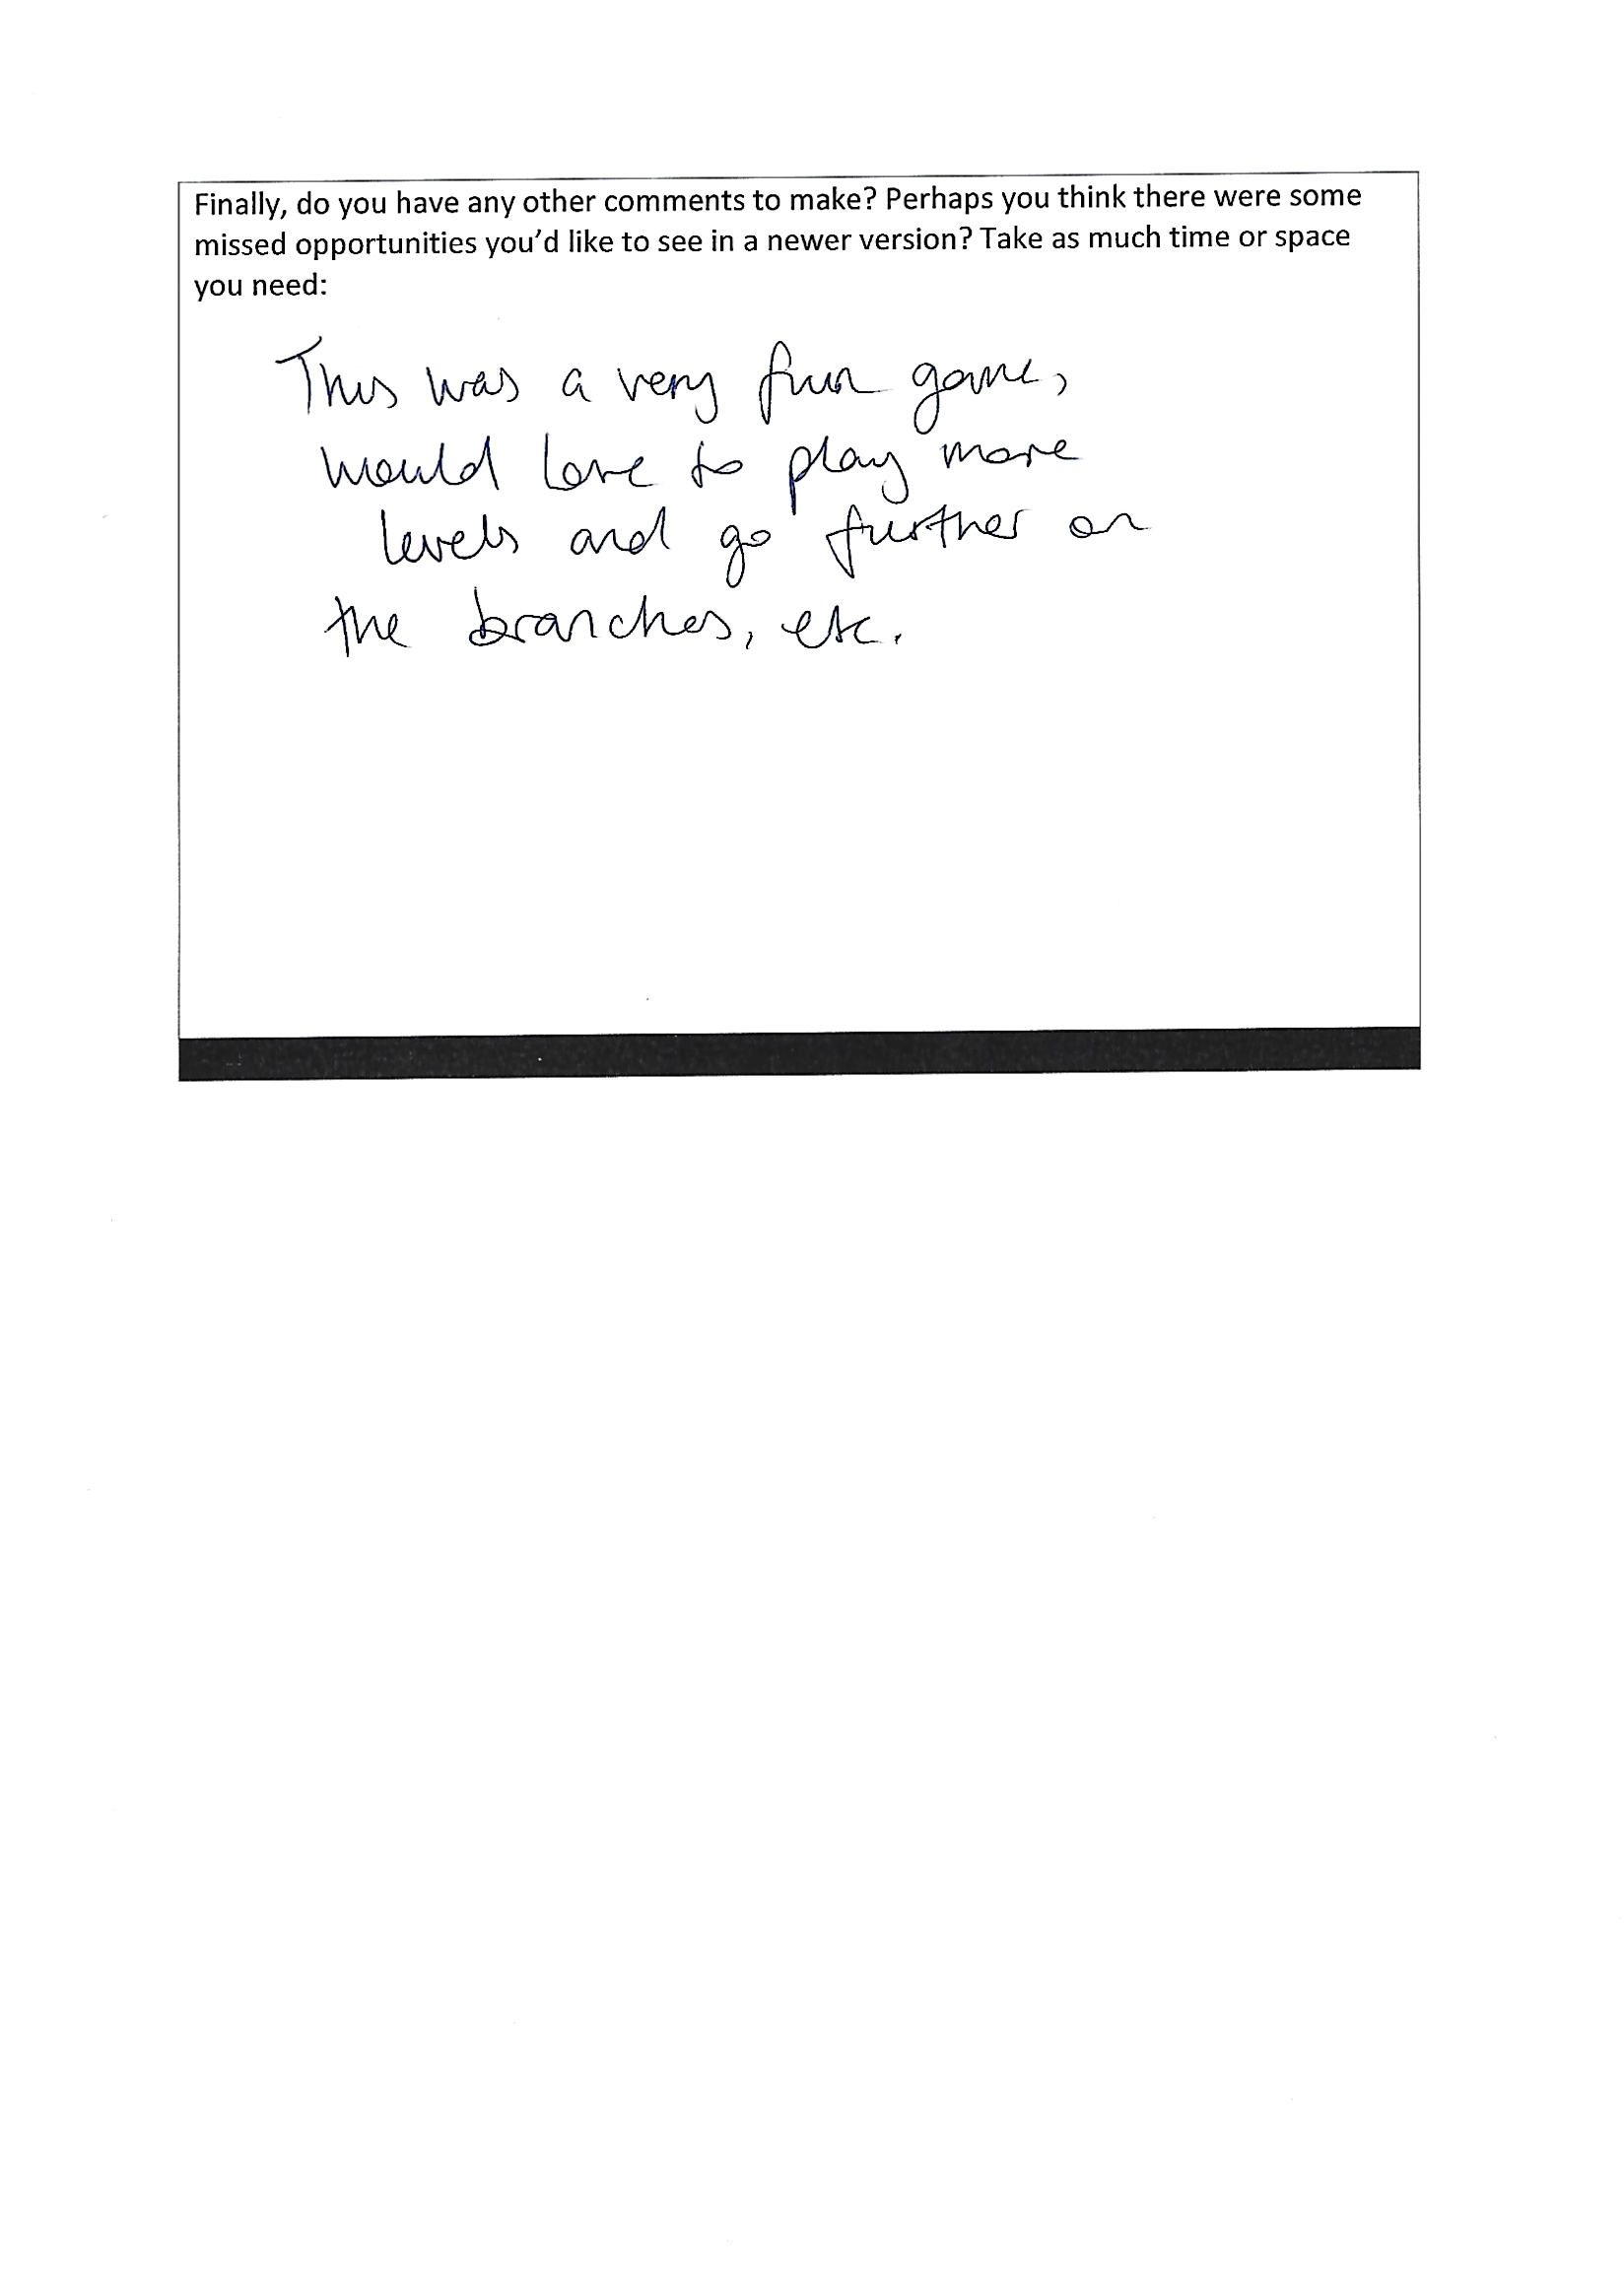 Finally, do you have any other comments to make? Perhaps you think there were some
missed opportunities you'd like to see in a newer version? Take as much time or space
you need:
This was a very fun game,
would love to play more
levels and go further on
the branches, etc.